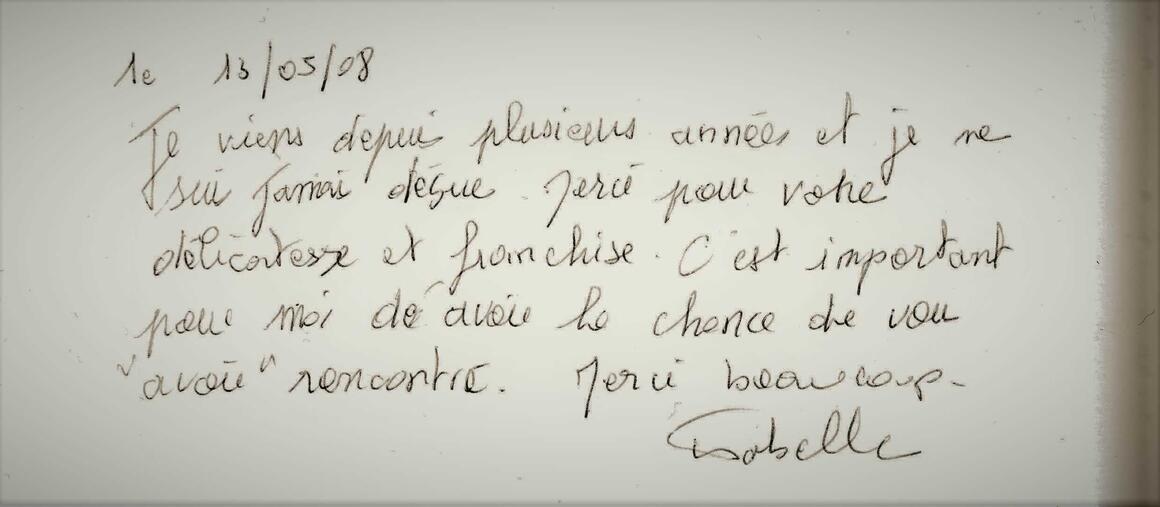 le 13/05/08
Je viens depuis plusieurs années et je ne
suis jamais déçue. Merci pour votre
délicatesse et franchise. C'est important
pour moi de avoir la chance de vous
"avoir" rencontré. Merci beaucoup.
Isabelle